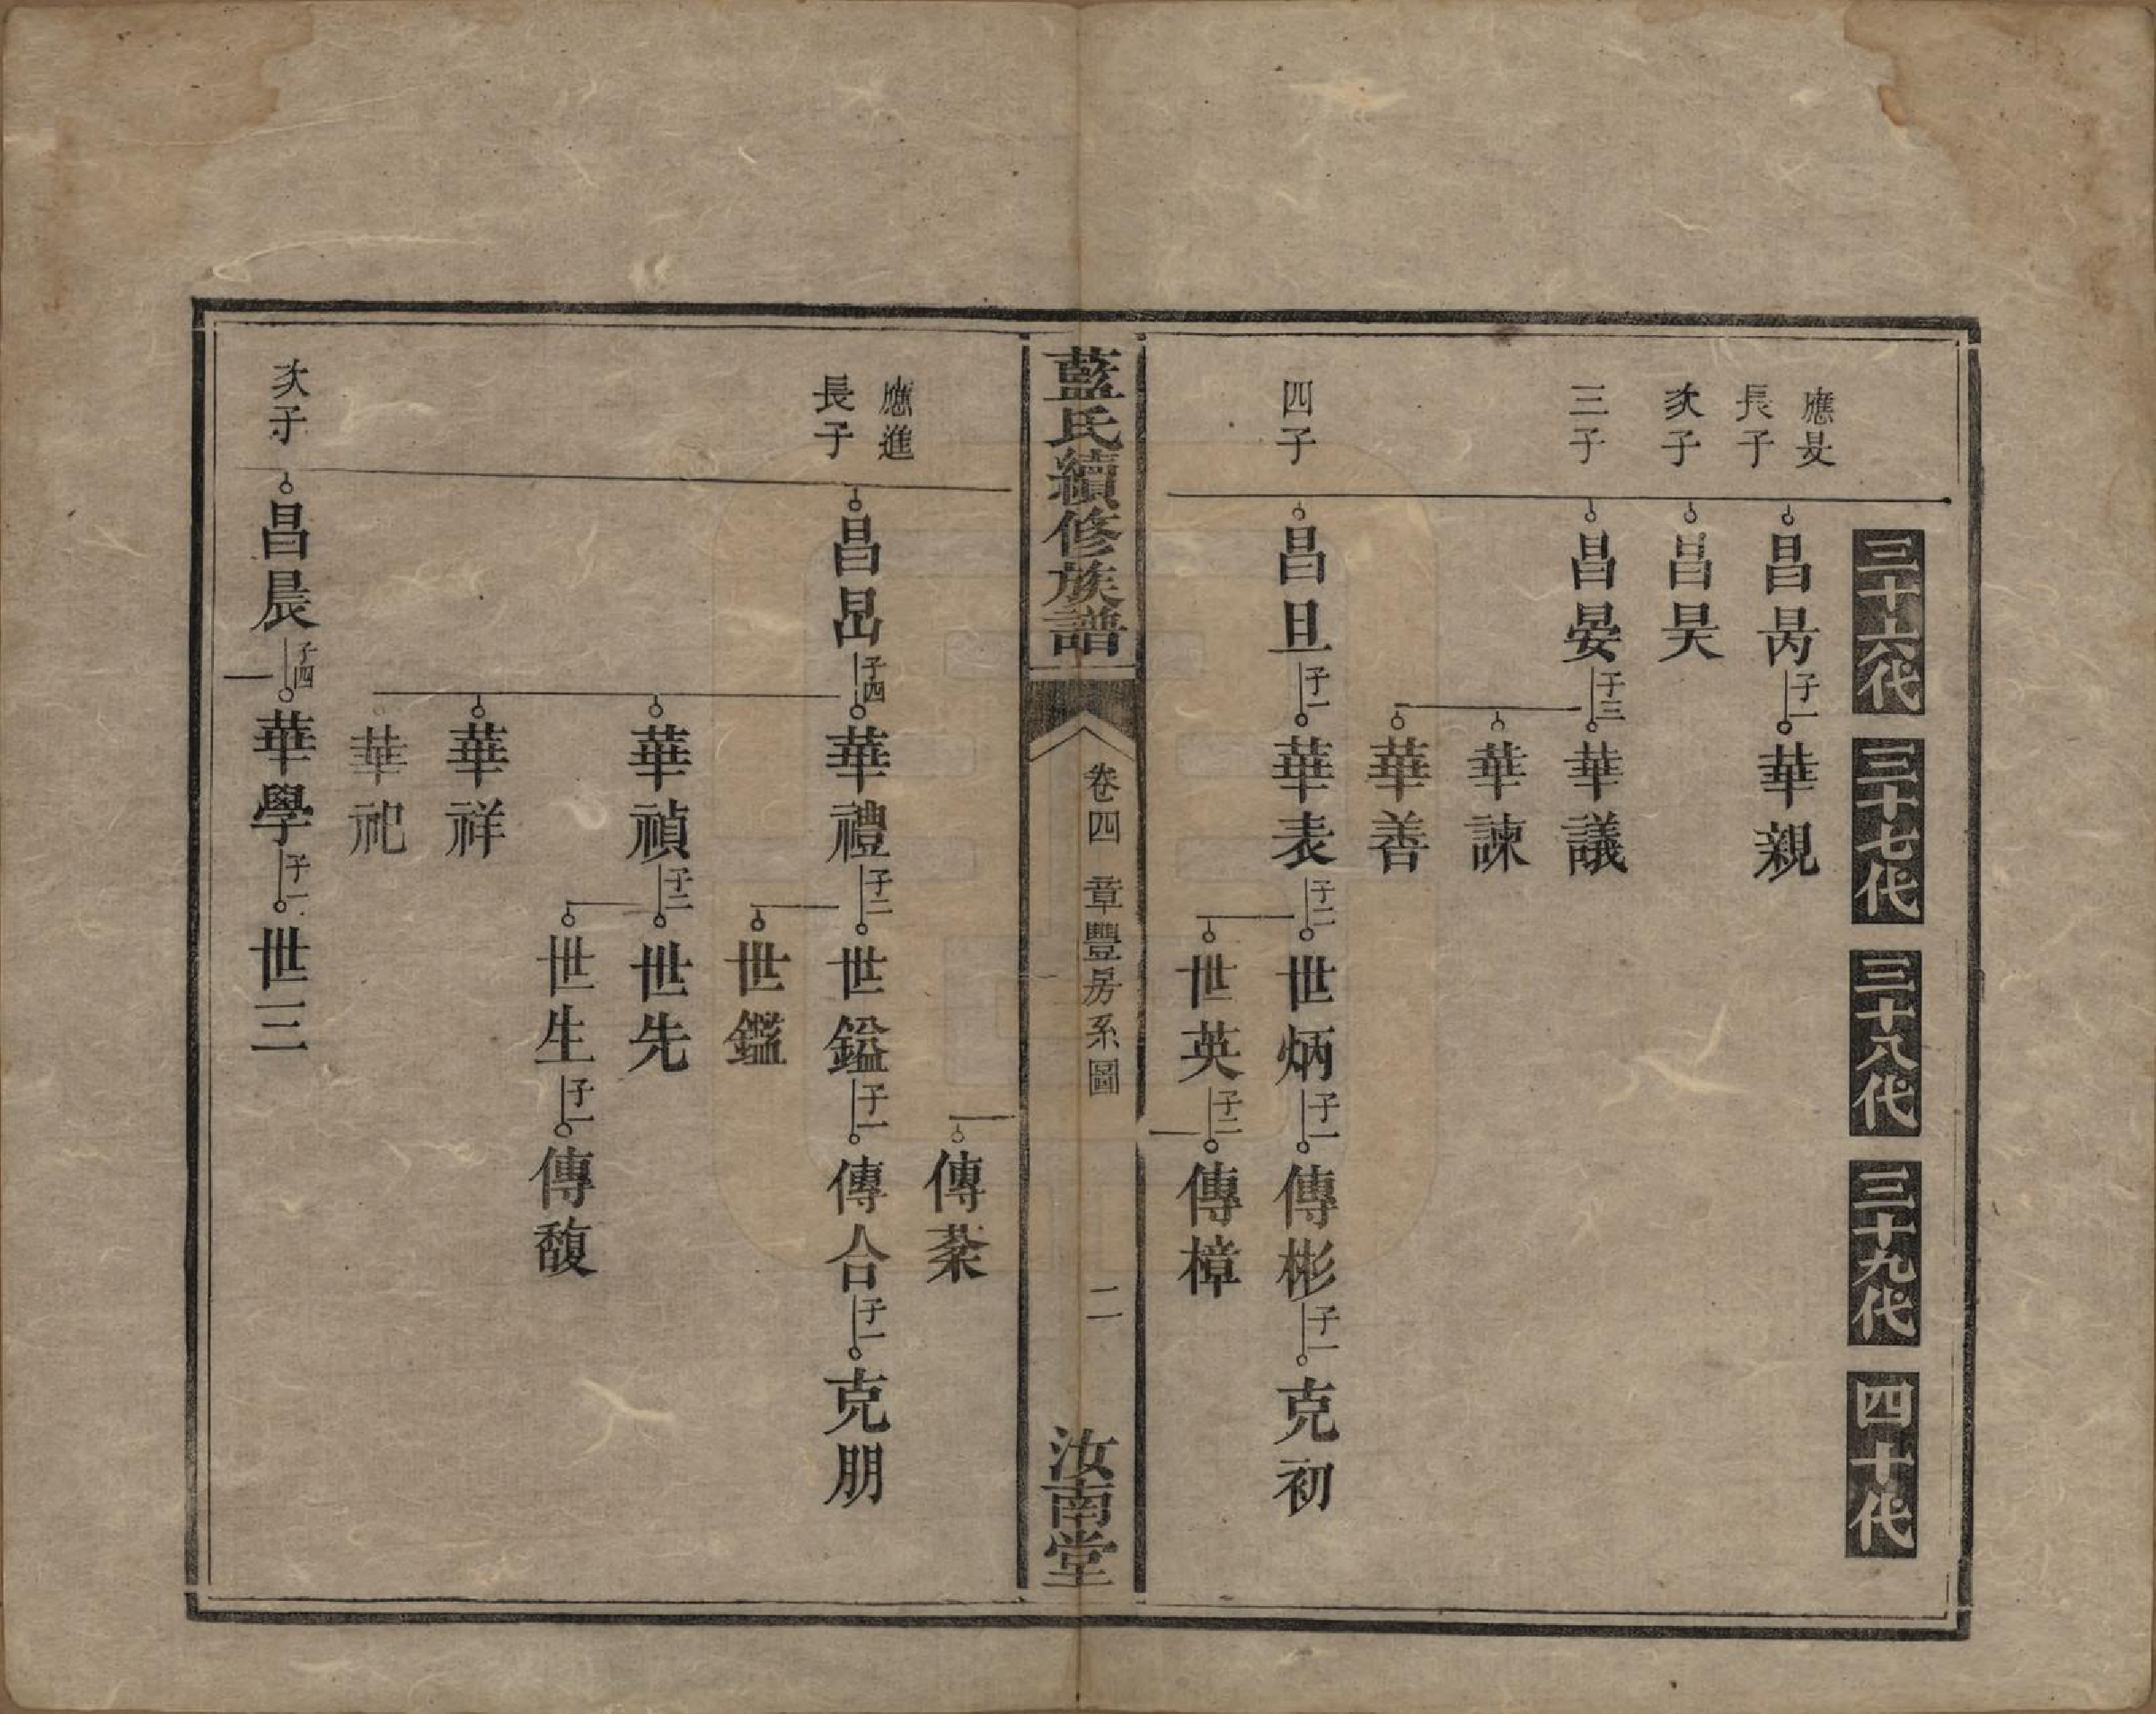 三十六代
三十七代
三十八代
三十九代
四十代
應叏
長子
昌昺
子一
華親
次子
昌昊
三子
昌晏
子三
華議
華諫
華善
四子
昌旦
子一
華表
子二
世炳
子一
傳彬
子一
克初
世英
子二
傳樟
藍氏續修族譜
卷四 章豐房系圖
二
汝南堂
傳棻
應進
長子
昌昮
子四
華禮
子二
世鎰
子一
傳合
子一
克朋
世鑑
華禎
子二
世先
世生
子一
傳馥
華祥
華祀
次子
昌晨
子四
華學
子一
世三